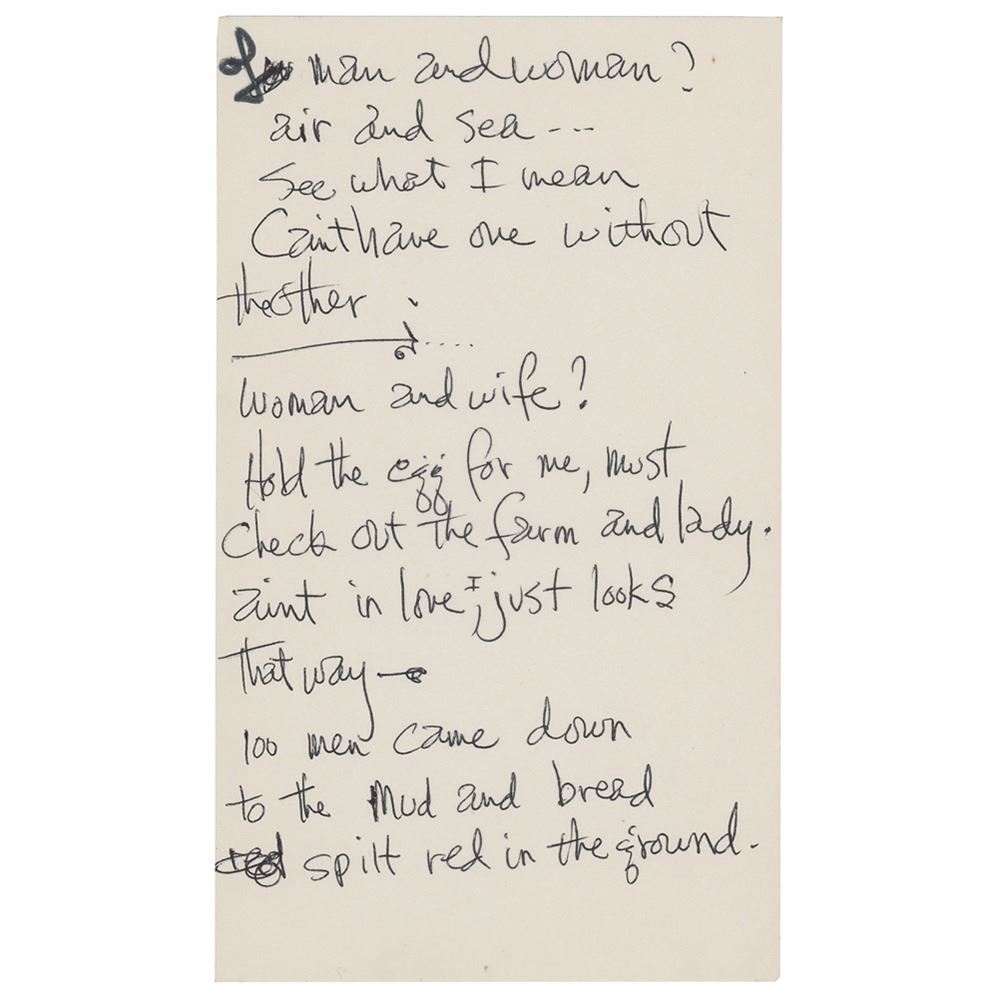 man and woman?
air and sea ---
See what I mean
Cain't have one without
the other
.....
Woman and wife?
Hold the egg for me, must
check out the farm and lady.
aint in love, I just looks
That way —
100 men came down
to the Mud and bread
spilt red in the ground.